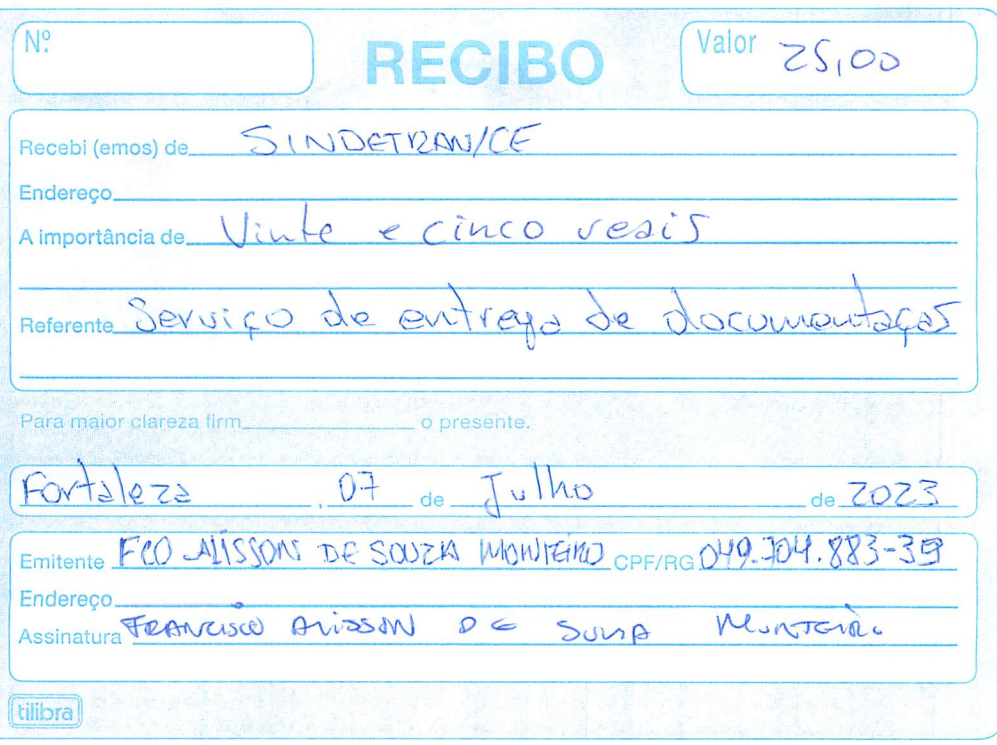 Nº
RECIBO
Valor 25,00
Recebi (emos) de SINDETRAN/CE
Endereço
A importância de Vinte e cinco reais
Referente Serviço de entrega de documentação
Para maior clareza firm o presente.
Fortaleza, 07 de Julho de 2023
Emitente FCO ALISSON DE SOUZA MONTEIRO CPF/RG 049.704.883-39
Endereço
Assinatura FRANCISCO ALISSON DE SOUSA MONTEIRO
tilibra